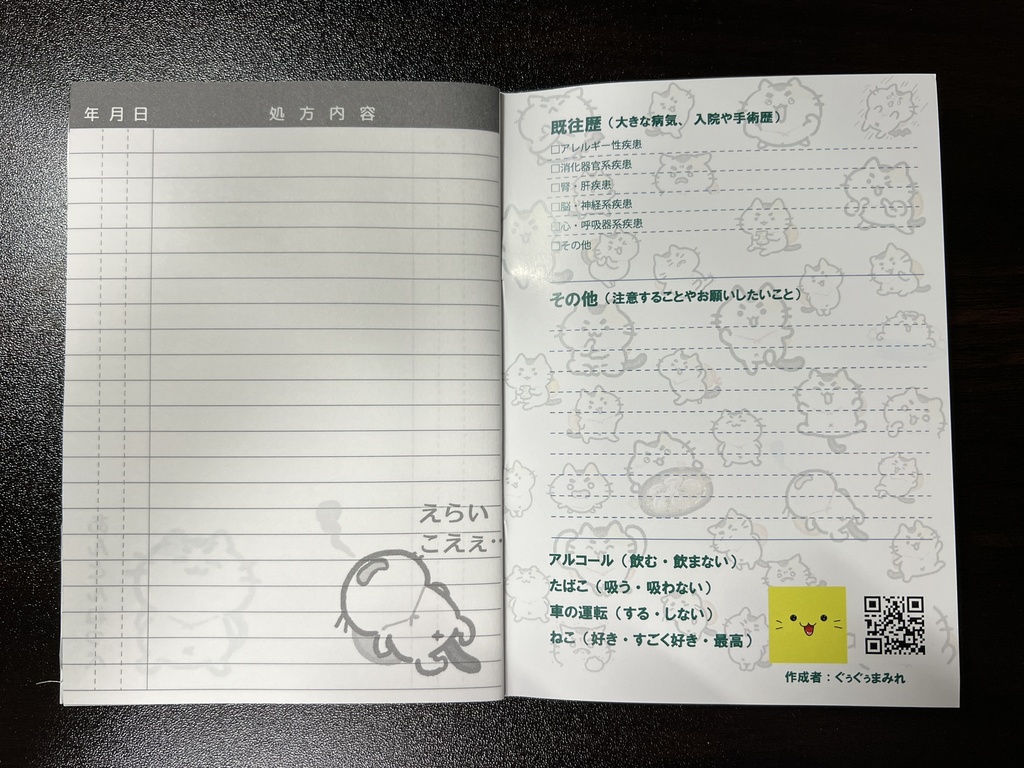 年 月 日 処 方 内 容
えらい
こえぇ‥
既往歴（大きな病気、入院や手術歴）
□アレルギー性疾患
□消化器官系疾患
□腎・肝疾患
□脳・神経系疾患
□心・呼吸器系疾患
□その他
その他（注意することやお願いしたいこと）
アルコール（飲む・飲まない）
たばこ（吸う・吸わない）
車の運転（する・しない）
ねこ（好き・すごく好き・最高）
作成者：ぐぅぐぅまみれ